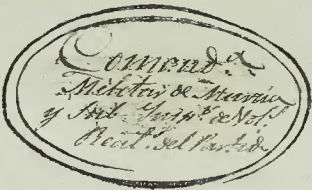 Comend.ª
Militar de Marina
y Sub-Yntª. de Not.ˢ
Real.ˢ del Partido